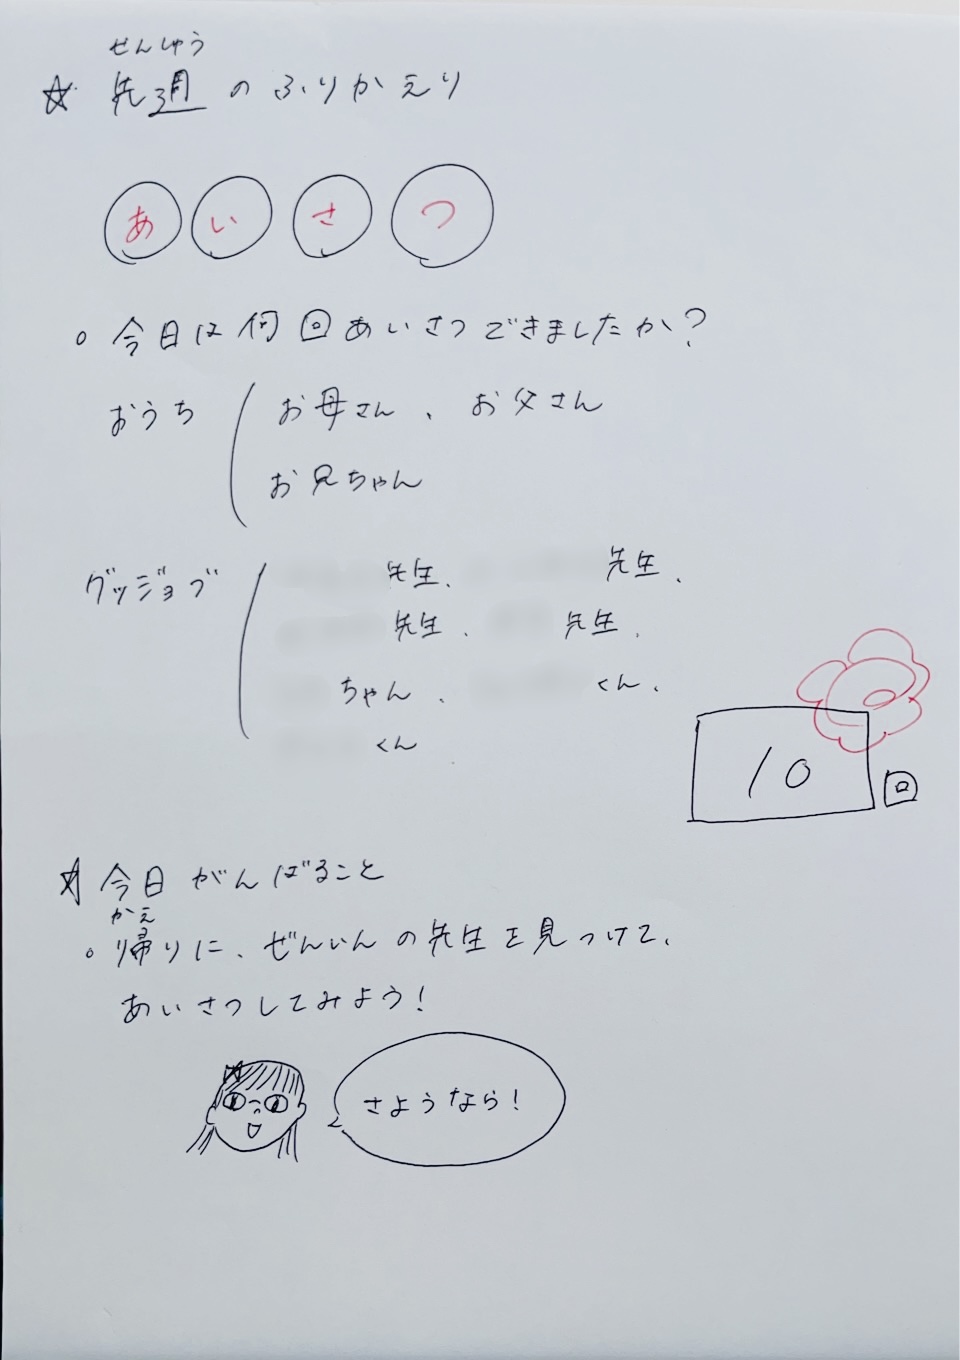 せんしゅう
☆ 先週のふりかえり
あ い さ つ
○ 今日は何回あいさつできましたか?
おうち お母さん、お父さん
お兄ちゃん
グッジョブ 先生、 先生、
先生、 先生、
ちゃん、 くん、
くん
10 回
☆ 今日がんばること
かえ
○ 帰りに、ぜんいんの先生を見つけて、
あいさつしてみよう!
さようなら!